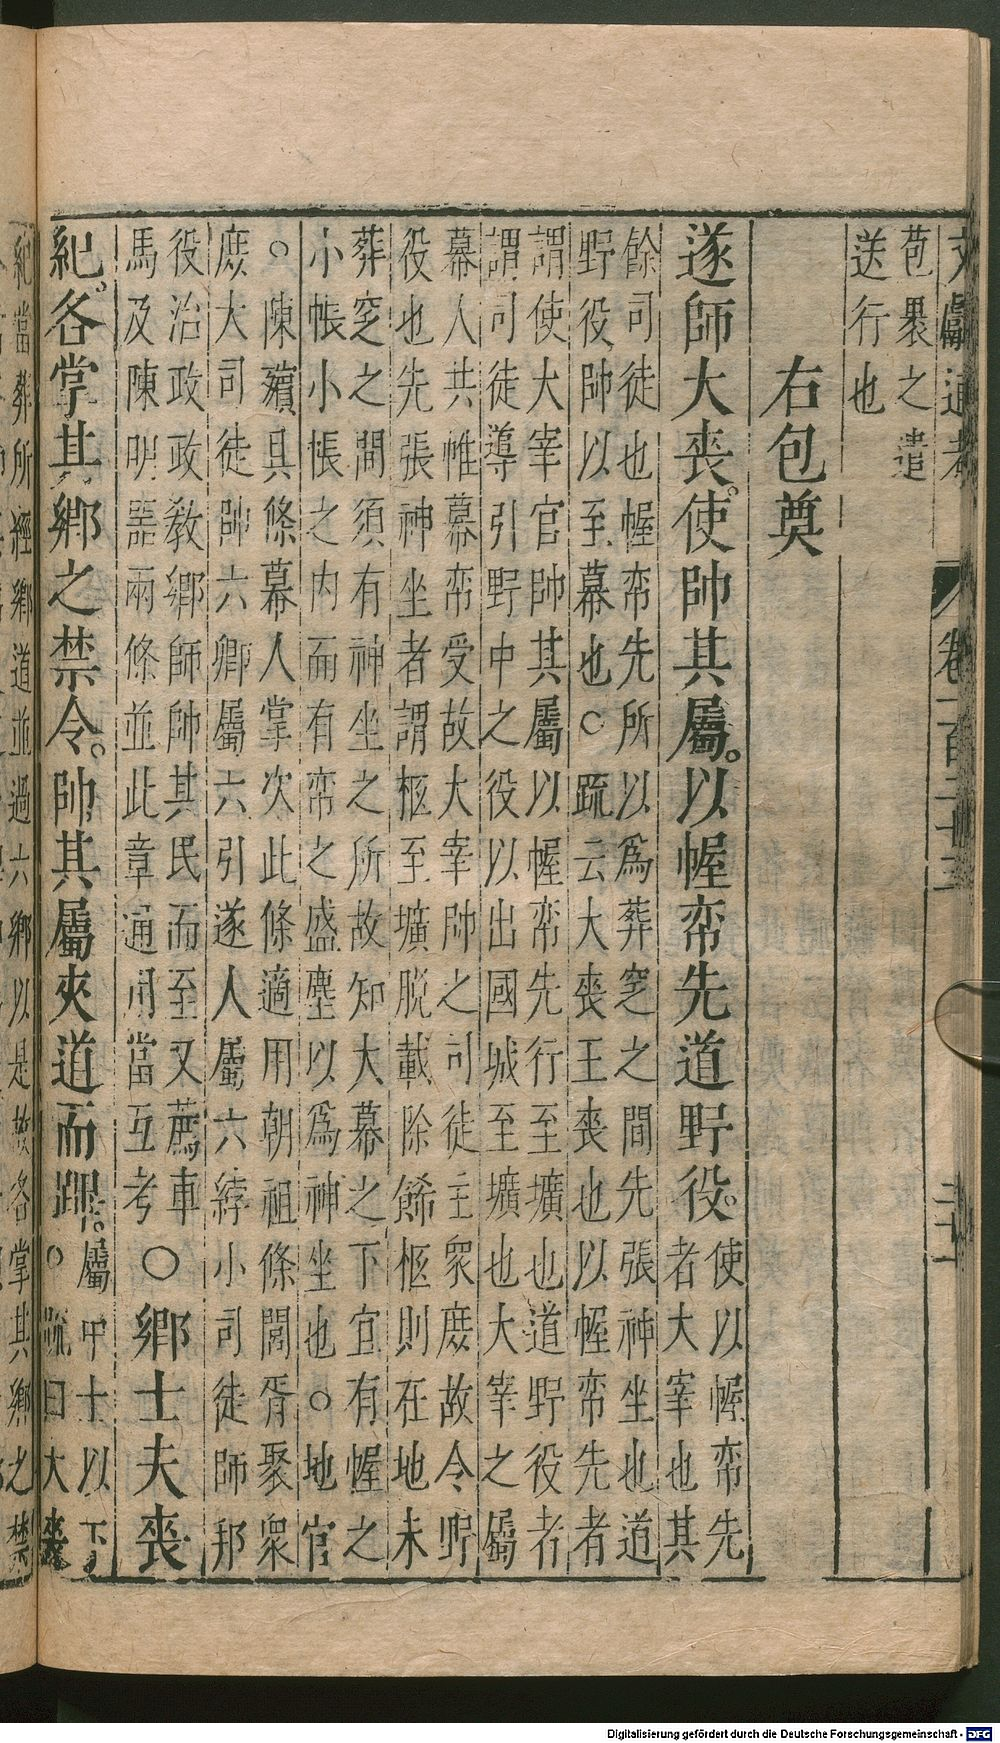 文獻通考 卷一百二十三
苞褁之遣
送行也
右包奠
遂師大喪。使帥其屬。以幄帟先道野役。使以幄帟先
者大宰也其
餘司徒也幄帟先所以為葬窆之間先張神坐也道
野役帥以至墓也○疏云大喪王喪也以幄帟先者
謂使大宰官帥其屬以幄帟先行至壙也道野役者
謂司徒導引野中之役以出國城至壙也大宰之屬
幕人共帷幕帟受故大宰帥之司徒主眾庶故令野
役也先張神坐者謂柩至壙脱載除餙柩則在地未
葬窆之間須有神坐之所故知大幕之下宜有幄之
小帳小帳之内而有帟之盛塵以為神坐也○地官
○陳殯具條幕人掌次此條適用朝祖條閭胥聚衆
庶大司徒帥六卿屬六引遂人屬六綍小司徒師邦
役治政政教鄉師帥其民而至又薦車
馬及陳明噐兩條並此章通用當互考○鄉士夫喪
紀。各掌其鄉之禁令。帥其屬夾道而蹕。屬中士以下
○疏曰大喪
紀當葬所經鄉道並過六鄉以是故各掌其鄉之禁
Digitalisierung gefördert durch die Deutsche Forschungsgemeinschaft - DFG